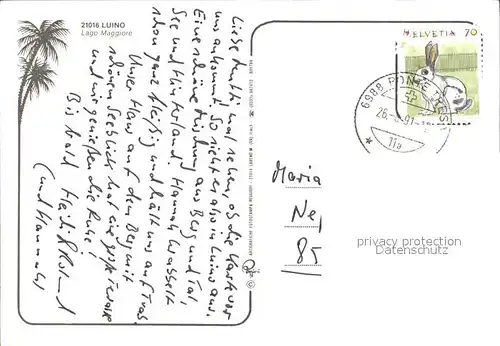 21016 LUINO
Lago Maggiore
Liebe Mutti, mal sehen, ob die Karte vor
uns ankommt. So sieht es also in Luino aus.
Eine schöne Mischung aus Berg und Tal,
See und Hinterland. Hannah krabbelt
schon ganz fleißig und hält uns auf Trab.
Unser Haus auf dem Berg mit
schönem Seeblick hat eine große Terrasse
und wir genießen die Ruhe!
Bis bald Heidi
(und Hannah)
HELVETIA 70
6988 PONTE TRESA
26.
91-
11a
Maria
Ne,
85
privacy protection
Datenschutz